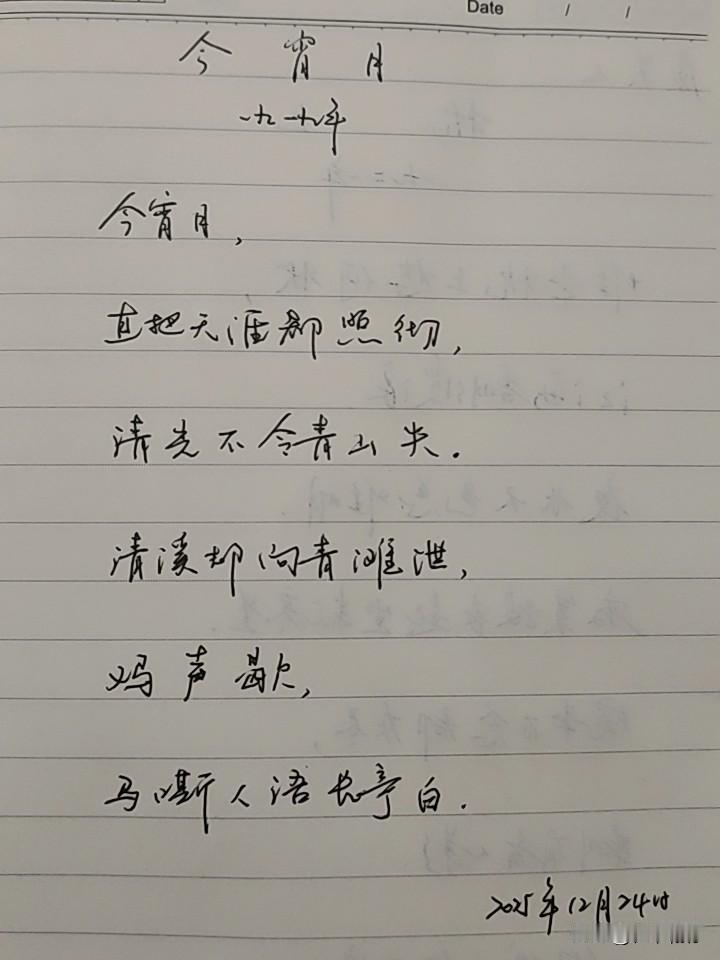 Date / /
今宵月
一九一九年
今宵月，
直把天涯都照彻，
清光不令青山失．
清溪却向青滩泄，
鸡声歇，
马嘶人语长亭白．
2025年12月24日